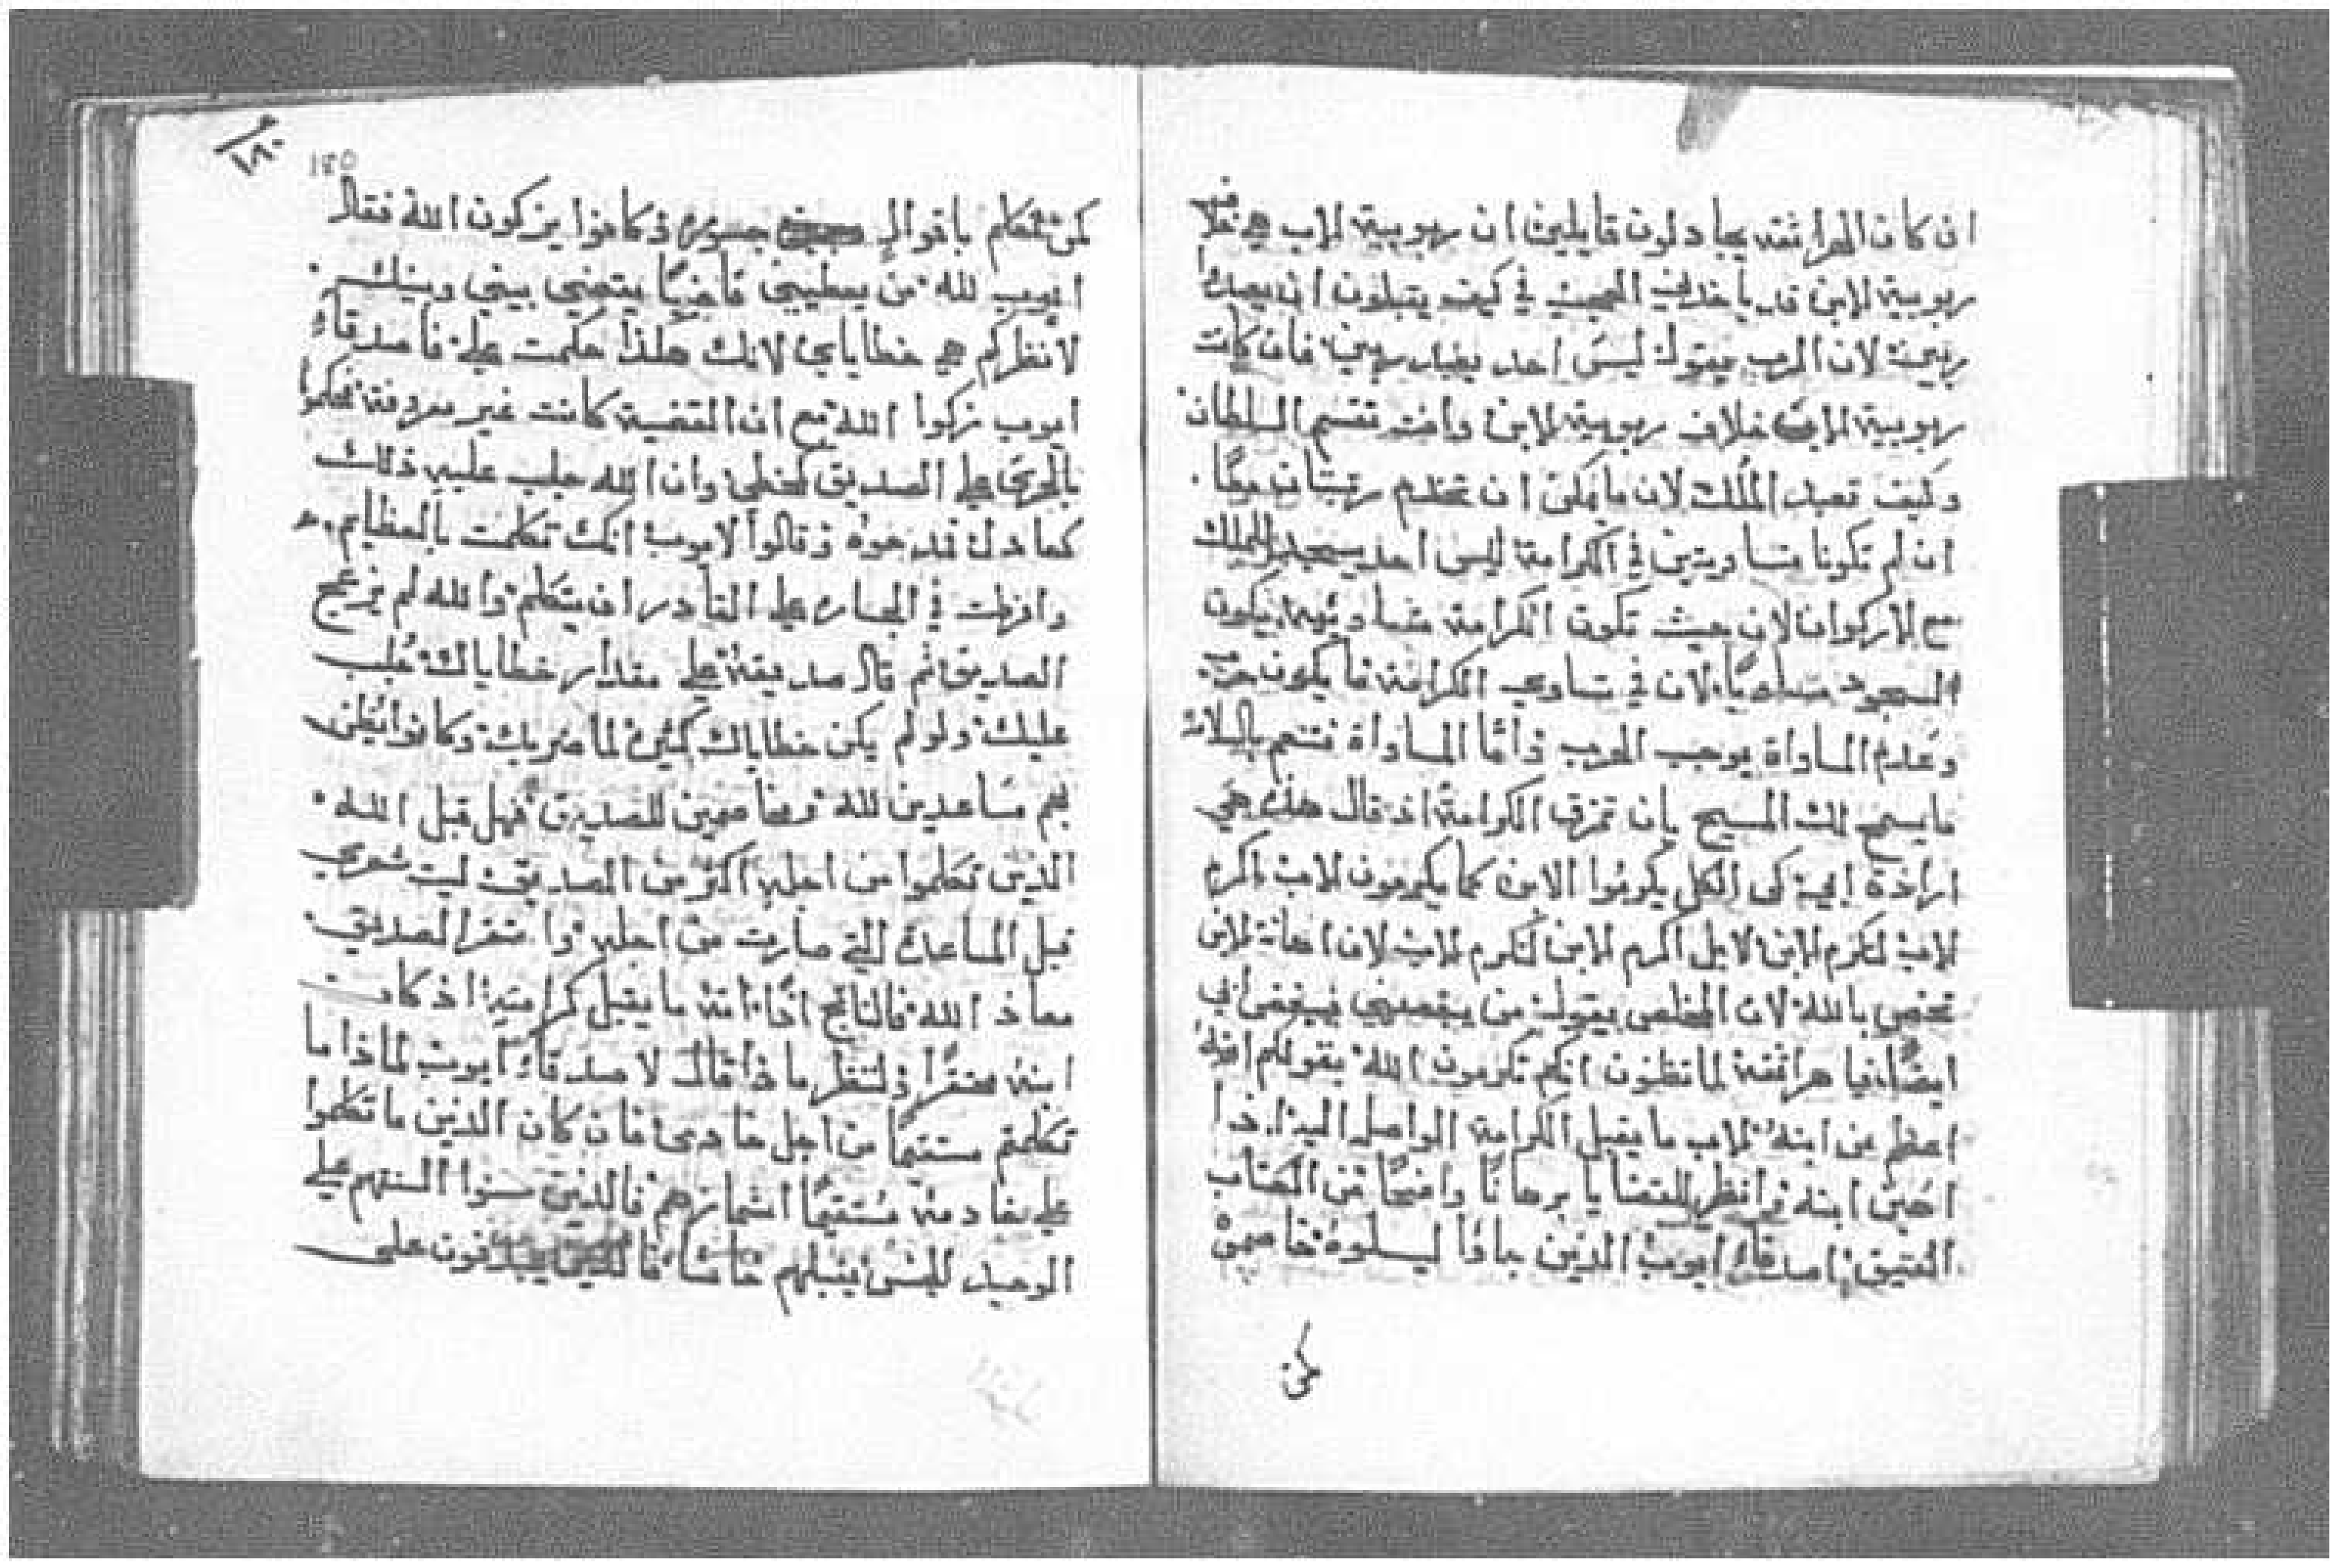 ان كان الهراطقه يجادلون قايلين ان ربوبية الاب هي خلاف
ربوبية الابن قد ياخدني العجب في كيف يقبلون ان يعبدوا
ربين لان الرب يقول ليس احد يعبد ربين فان كانت
ربوبية الاب خلاف ربوبية الابن واخد تقسم السلطان
وكيف تعبد الملك لان ما يمكن ان تخدم رتبتان معًا
ان لم تكونا متساويتين في الكرامة ليس احد يسجد للملك
مع الاركوان لان حيث تكون الكرامة متساويه يكون
السجود متساويًا لان في تساوي الكرامة ما يكون حرب
وعدم المساواة يوجب الحرب وامّا المساواة فتتم بالثلاث
ما يسمح لك المسيح بان تمزق الكرامة اذ قال هذه هي
ارادة ابي كى الكل يكرموا الابن كما يكرمون الاب اكرم
الاب لتكرم الابن لا بل اكرم الابن لتكرم الاب لان اهانة الابن
تختص بالله لان المخلص يقول من يبغضني فيبغض ابي
ايضًا فيا هراطقة لما تظنون انكم تكرمون الله بقولكم انه
اعظم من ابنه الاب ما يقبل الكرامة الواصلة اليه اذا
اهين ابنه وانظر للقضايا برهانًا واضحًا من الكتاب
العتيق اصدقاء ايوب الذين جاوًا ليسلوه خاصموه
كمن
١٢٠
120
كمن تتكلم باقوال جسوره وكانوا يزكون الله فقال
ايوب لله من يعطيني قاضيًا يقضي بيني وبينك
لانظر كم هي خطاياي لانك هكذا حكمت علي فاصدقاء
ايوب زكوا الله مع ان القضية كانت غير معروفة فحكموا
بالحرى على الصديق كمخطي وان الله جلب عليه ذلك
كعادل قدحوه وقالوا لايوب انك تكلمت بالعظايم
وافرطت في الجساره على القادر ان يتكلم والله لم يزعج
الصديق ثم قال صديقه على مقدار خطاياك جُلب
عليك ولو لم يكن خطاياك كثيرة لما ضربك وكانوا يُظن
بهم مساعدين لله ومخاصمين للصديق فهل قبل الله
الذين تكلموا من اجله اكثر من الصديق ليت شعري
قبل المساعده التي صارت من اجله واحتقر الصديق
معاذ الله فالناتج اذًا انه ما يقبل كرامته اذ كانت
ابنه محتقرًا ولننظر ماذا قال لاصدقاء ايوب لماذا ما
تكلمتم مستقيمًا من اجل خادمى فان كان الذين ما تكلموا
على خادمه مُستقيمًا اشمازهم فالذين سنوا السنتهم على
الوحيد للجنس ايقبلهم حاشا فالذين يجدفون على